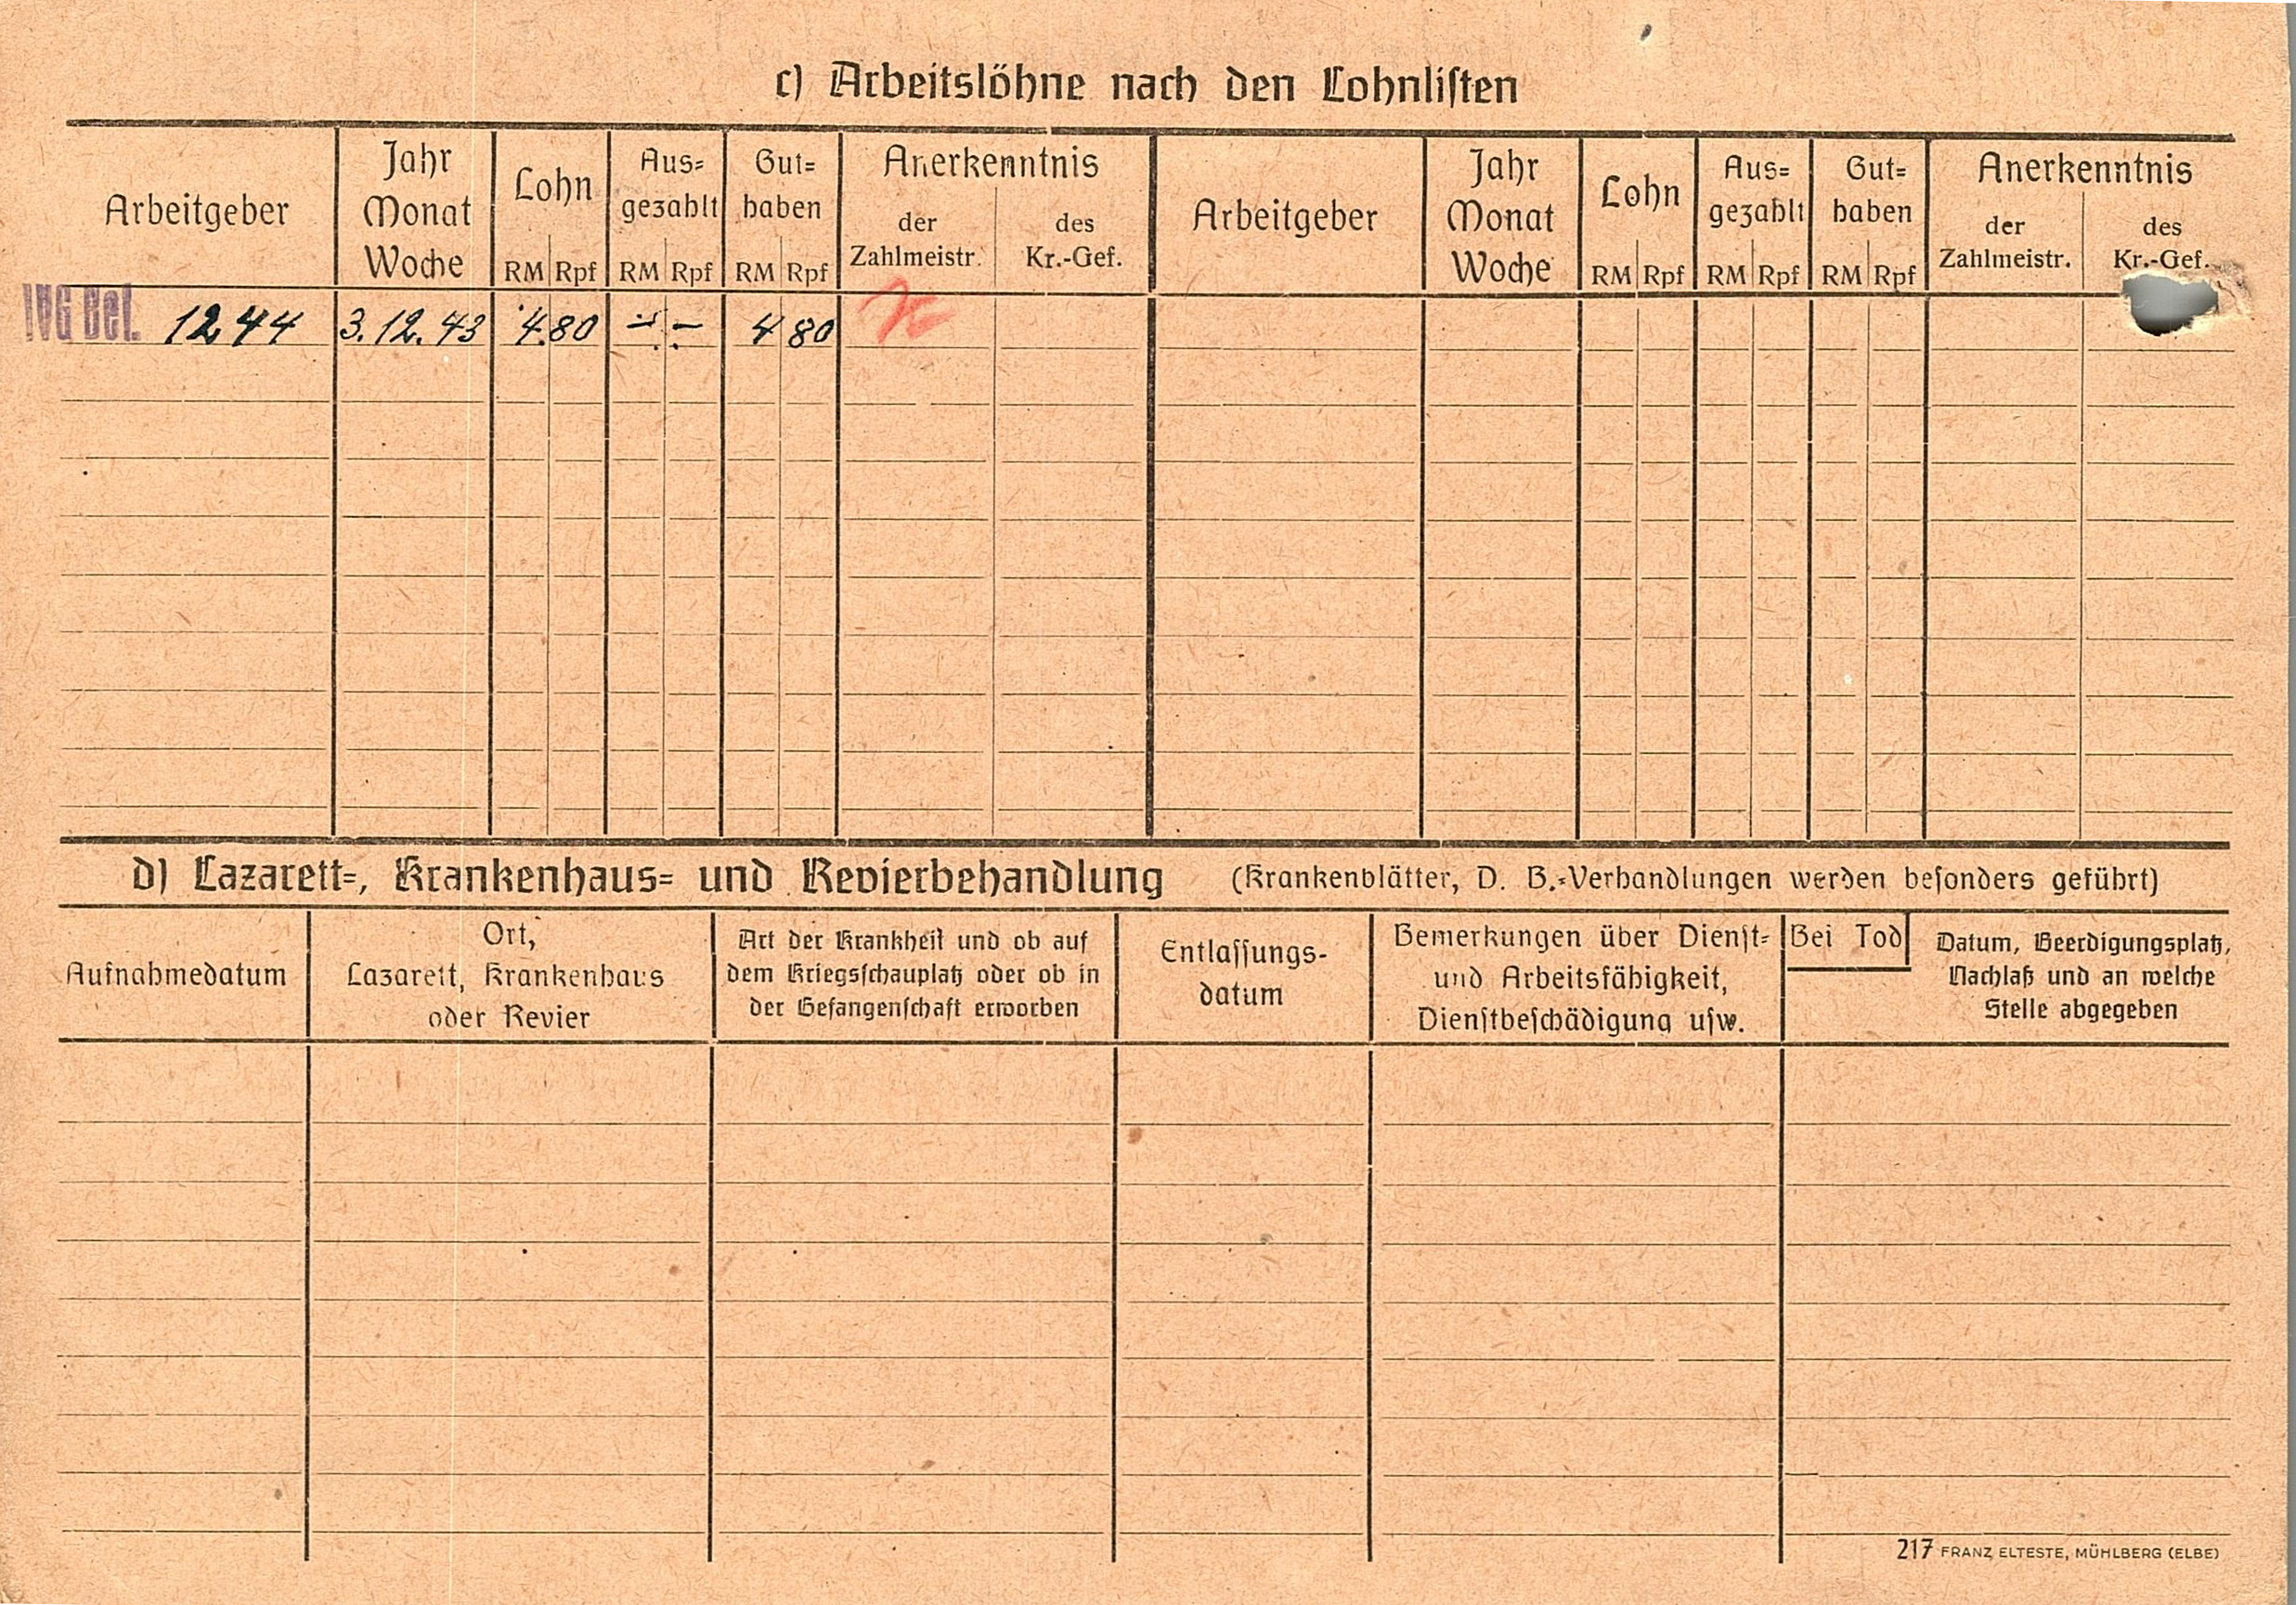 c) Arbeitslöhne nach den Lohnlisten
Arbeitgeber
Jahr
Monat
Woche
Lohn
RM Rpf
Aus=
gezahlt
RM Rpf
Gut=
haben
RM Rpf
Anerkenntnis
der
Zahlmeistr.
des
Kr.-Gef.
Arbeitgeber
Jahr
Monat
Woche
Lohn
RM Rpf
Aus=
gezahlt
RM Rpf
Gut=
haben
RM Rpf
Anerkenntnis
der
Zahlmeistr.
des
Kr.-Gef.
1244 3.12.43 4.80 - - 4 80
d) Lazarett=, Krankenhaus= und Revierbehandlung (Krankenblätter, D. B.=Verhandlungen werden besonders geführt)
Aufnahmedatum
Ort,
Lazarett, Krankenhaus
oder Revier
Art der Krankheit und ob auf
dem Kriegsschauplatz oder ob in
der Gefangenschaft erworben
Entlassungs-
datum
Bemerkungen über Dienst=
und Arbeitsfähigkeit,
Dienstbeschädigung usw.
Bei Tod
Datum, Beerdigungsplatz,
Nachlaß und an welche
Stelle abgegeben
217 FRANZ ELTESTE, MÜHLBERG (ELBE)